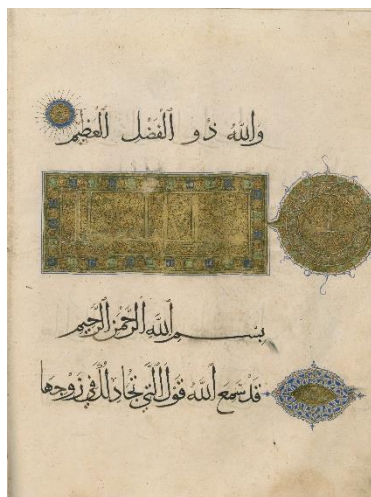 وَاللَّهُ ذُو الْفَضْلِ الْعَظِيمِ
بِسْمِ اللَّهِ الرَّحْمَٰنِ الرَّحِيمِ
قَدْ سَمِعَ اللَّهُ قَوْلَ الَّتِي تُجَادِلُكَ فِي زَوْجِهَا